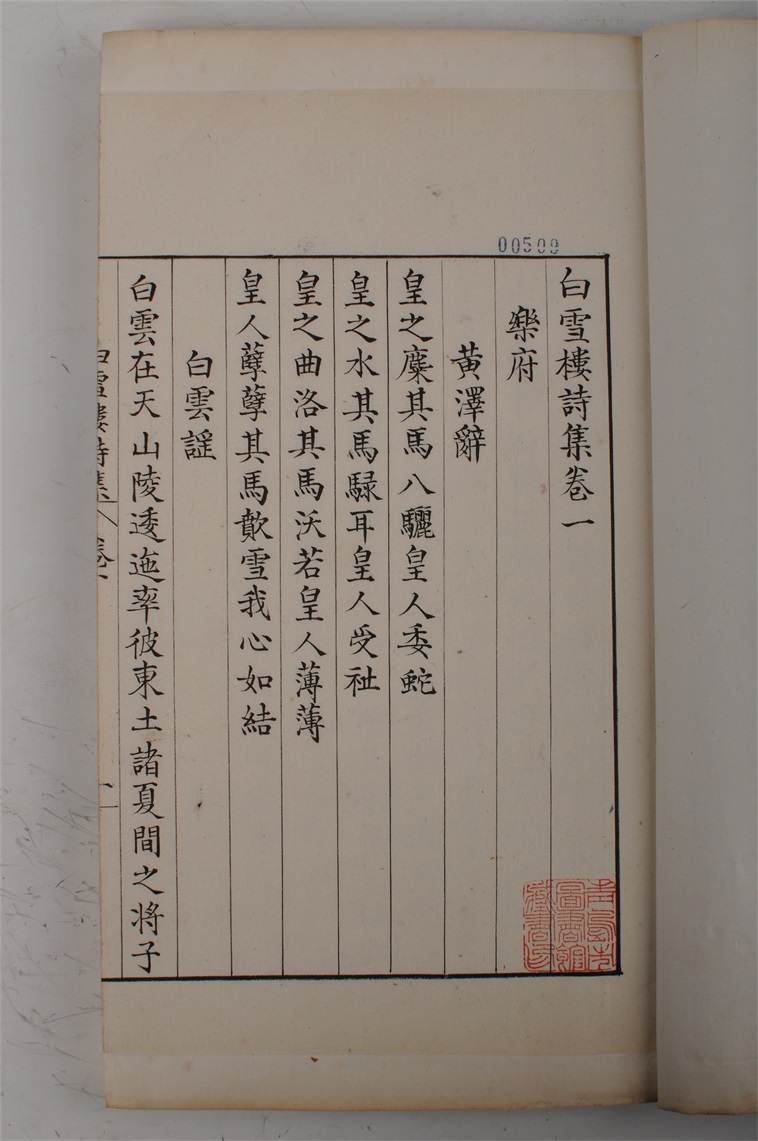 00509
白雪樓詩集卷一
樂府
黃澤辭
皇之麋其馬八驪皇人委蛇
皇之水其馬騄耳皇人受祉
皇之曲洛其馬沃若皇人薄薄
皇人孽孽其馬歕雪我心如結
白雲謡
白雲在天山陵透迤率彼東土諸夏間之将子
白雪樓詩集
卷一
一
青島市
圖書館
藏書印